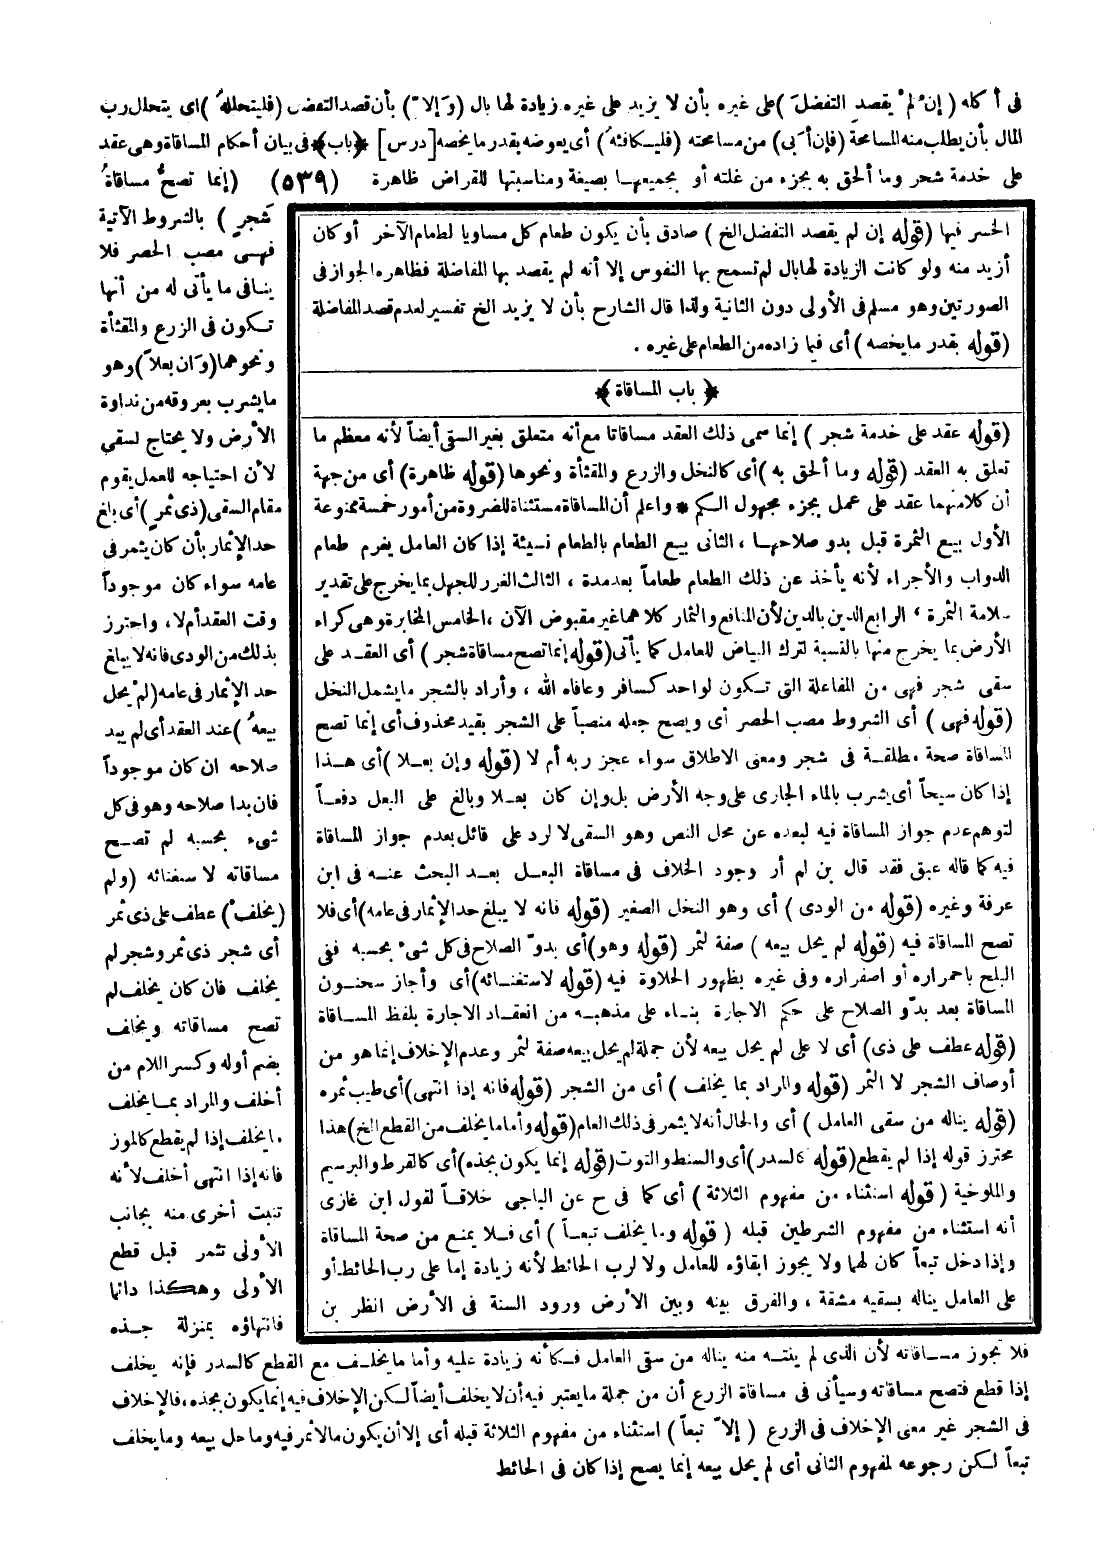 فى أكله (إنْ لمْ يقصد التفضلَ) على غيره بأن لا يزيد على غيره زيادة لها بال (وَإلاّ) بأن قصد التفضل (فليتحللهُ) اى يتحلل رب
المال بأن يطلب منه المسامحة (فإن أبى) من مسامحته (فليكافئهُ) أى يعوضه بقدر ما يخصه [درس] ﴿باب﴾ فى بيان أحكام المساقاة وهى عقد
على خدمة شجر وما ألحق به بجزء من غلته أو بجميعها بصيغة ومناسبتها للقراض ظاهرة (٥٣٩) (إنما تصحُّ مساقاةُ
شَجرٍ) بالشروط الآتية
فهى مصب الحصر فلا
ينافى ما يأتى له من أنها
تكون فى الزرع والمقثأة
ونحوهما (وَان بعلاً) وهو
ما يشرب بعروقه من نداوة
الأرض ولا يحتاج لسقي
لأن احتياجه للعمل يقوم
مقام السقى (ذى ثمرٍ) أى بلغ
حد الإثمار بأن كان يثمر فى
عامه سواء كان موجوداً
وقت العقد أم لا، واحترز
بذلك من الودى فانه لا يبلغ
حد الإثمار فى عامه (لمْ يحل
بيعهُ) عند العقد أى لم يبد
صلاحه ان كان موجوداً
فان بدا صلاحه وهو فى كل
شىء بحسبه لم تصح
مساقاته لاستغنائه (ولم
يخلفْ) عطف على ذى ثمر
أى شجر ذى ثمر وشجر لم
يخلف فان كان يخلف لم
تصح مساقاته ويخلف
بضم أوله وكسر اللام من
أخلف والمراد بما يخلف
ما يخلف إذا لم يقطع كالموز
فانه إذا انتهى أخلف لأنه
تنبت أخرى منه بجانب
الأولى تثمر قبل قطع
الأولى وهكذا دائما
فانتهاؤه بمنزلة جذه
فلا تجوز مساقاته لأن الذى لم ينته منه يناله من سقى العامل فكأنه زيادة عليه وأما ما يخلف مع القطع كالسدر فإنه يخلف
إذا قطع فتصح مساقاته وسيأتى فى مساقاة الزرع أن من جملة ما يعتبر فيه أن لا يخلف أيضاً لكن الإخلاف فيه إنما يكون بجذه، فالإخلاف
فى الشجر غير معنى الإخلاف فى الزرع (إلاّ تبعاً) استثناء من مفهوم الثلاثة قبله أى إلا أن يكون مالا ثمر فيه وما حل بيعه وما يخلف
تبعاً لكن رجوعه لمفهوم الثانى أى لم يحل بيعه إنما يصح إذا كان فى الحائط
الحسر فيها (قوله إن لم يقصد التفضل الخ) صادق بأن يكون طعام كل مساويا لطعام الآخر أو كان
أزيد منه ولو كانت الزيادة لها بال لم تسمح بها النفوس إلا أنه لم يقصد بها المفاضلة فظاهره الجواز فى
الصورتين وهو مسلم فى الأولى دون الثانية ولذا قال الشارح بأن لا يزيد الخ تفسير لعدم قصد المفاضلة
(قوله بقدر ما يخصه) أى فيما زاده من الطعام على غيره .
﴿باب المساقاة﴾
(قوله عقد على خدمة شجر) إنما سمى ذلك العقد مساقاتا مع أنه متعلق بغير السقى أيضاً لأنه معظم ما
تعلق به العقد (قوله وما ألحق به) أى كالنخل والزرع والمقثأة ونحوها (قوله ظاهرة) أى من جهة
أن كلا منهما عقد على عمل بجزء مجهول الكم * واعلم أن المساقاة مستثناة للضروة من أمور خمسة ممنوعة
الأول بيع الثمرة قبل بدو صلاحها ، الثانى بيع الطعام بالطعام نسيئة إذا كان العامل يغرم طعام
الدواب والأجراء لأنه يأخذ عن ذلك الطعام طعاماً بعد مدة ، الثالث الغرر للجهل بما يخرج على تقدير
سلامة الثمرة ، الرابع الدين بالدين لأن المنافع والثمار كلاهما غير مقبوض الآن ، الخامس المخابرة وهى كراء
الأرض بما يخرج منها بالنسبة لترك البياض للعامل كما يأتى (قوله إنما تصح مساقاة شجر) أى العقد على
سقى شجر فهى من المفاعلة التى تكون لواحد كسافر وعافاه الله ، وأراد بالشجر ما يشمل النخل
(قوله فهى) أى الشروط مصب الحصر أى ويصح جعله منصباً على الشجر بقيد محذوف أى إنما تصح
المساقاة صحة مطلقة فى شجر ومعنى الاطلاق سواء عجز ربه أم لا (قوله وإن بعلا) أى هذا
إذا كان سيحاً أى يشرب بالماء الجارى على وجه الأرض بل وإن كان بعلا وبالغ على البعل دفعاً
لتوهم عدم جواز المساقاة فيه لبعده عن محل النص وهو السقى لا لرد على قائل بعدم جواز المساقاة
فيه كما قاله عبق فقد قال بن لم أر وجود الخلاف فى مساقاة البعل بعد البحث عنه فى ابن
عرفة وغيره (قوله من الودى) أى وهو النخل الصغير (قوله فانه لا يبلغ حد الإثمار فى عامه) أى فلا
تصح المساقاة فيه (قوله لم يحل بيعه) صفة لثمر (قوله وهو) أى بدوّ الصلاح فى كل شىء بحسبه ففى
البلح باحمراره أو اصفراره وفى غيره بظهور الحلاوة فيه (قوله لاستغنائه) أى وأجاز سحنون
المساقاة بعد بدّو الصلاح على حكم الاجارة بناء على مذهبه من انعقاد الاجارة بلفظ المساقاة
(قوله عطف على ذى) أى لا على لم يحل بيعه لأن جملة لم يحل بيعه صفة لثمر وعدم الإخلاف إنما هو من
أوصاف الشجر لا الثمر (قوله والمراد بما يخلف) أى من الشجر (قوله فانه إذا انتهى) أى طيب ثمره
(قوله يناله من سقى العامل) أى والحال أنه لا يثمر فى ذلك العام (قوله وأما ما يخلف من القطع الخ) هذا
محترز قوله إذا لم يقطع (قوله كالسدر) أى والسنط والتوت (قوله إنما يكون بجذه) أى كالقرط والبرسيم
والملوخية (قوله استثناء من مفهوم الثلاثة) أى كما فى ح عن الباجى خلافاً لقول ابن غازى
أنه استثناء من مفهوم الشرطين قبله (قوله وما يخلف تبعاً) أى فلا يمنع من صحة المساقاة
وإذا دخل تبعاً كان لهما ولا يجوز ابقاؤه للعامل ولا لرب الحائط لأنه زيادة إما على رب الحائط أو
على العامل يناله بسقيه مشقة ، والفرق بينه وبين الأرض ورود السنة فى الأرض انظر بن